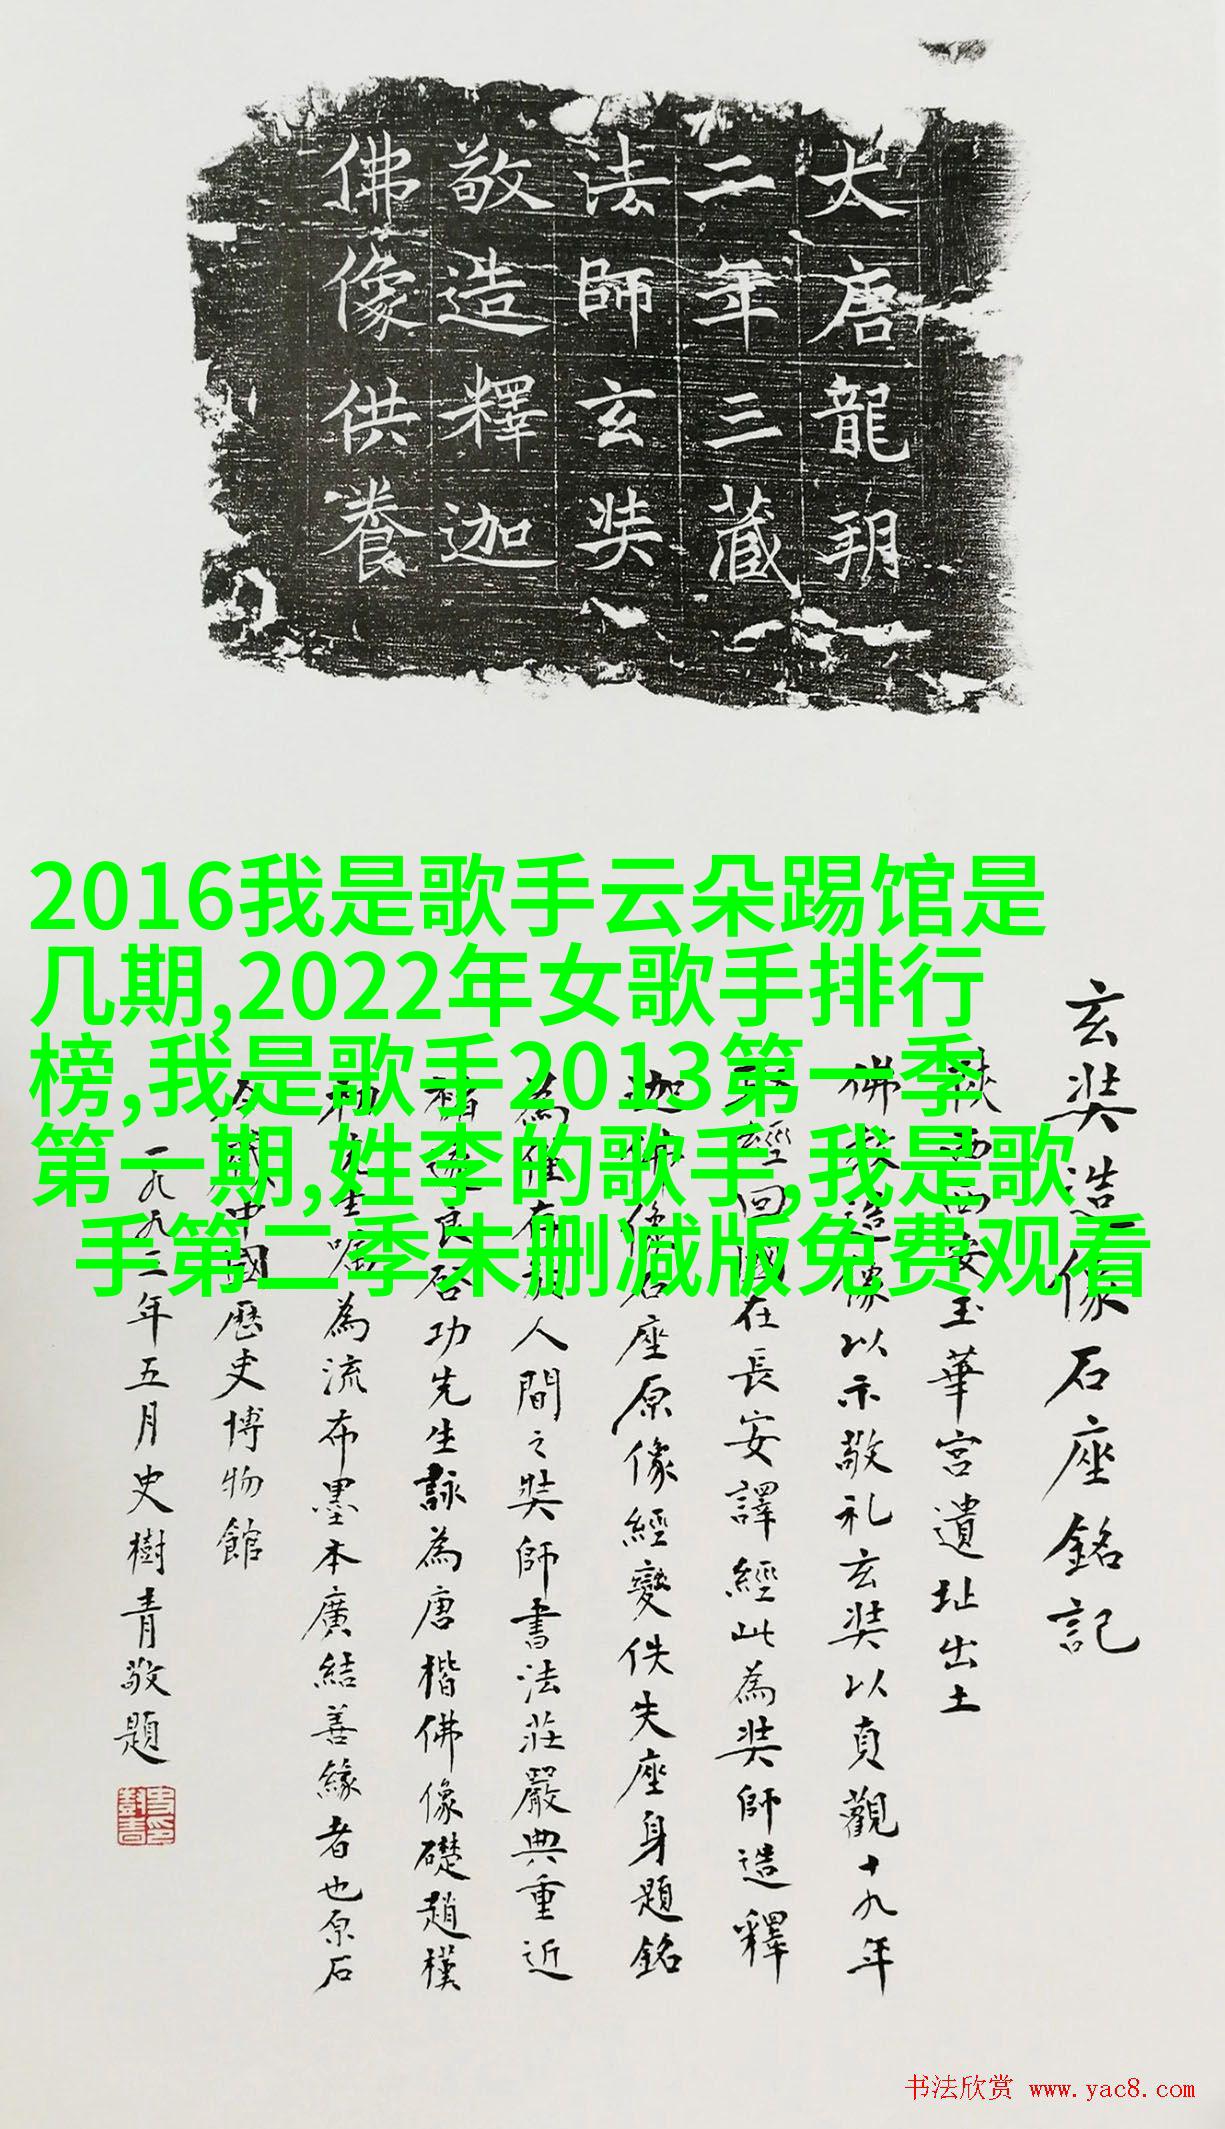 大唐龍朔
二年三藏
法師玄奘
敬造釋迦
佛像供養
2016我是歌手云朵踢馆是
几期,2022年女歌手排行
榜,我是歌手2013第一季
第一期,姓李的歌手,我是歌
手第二季未删减版免费观看
玄奘造像石座銘記
陝西西安玉華宮遺址出土
佛教造像以示敬礼玄奘以貞觀十九年
經回國在長安譯經此為奘師造釋
迦佛像石座原像經變佚失座身題銘
為僅存於人間之奘師書法莊嚴典重近
褚遂良啓功先生詠為唐楷佛像礎趙樸
初先生囑為流布墨本廣結善緣者也原石
今藏中國歷史博物館
一九九二年五月史樹青敬題
书法欣赏 www.yac8.com